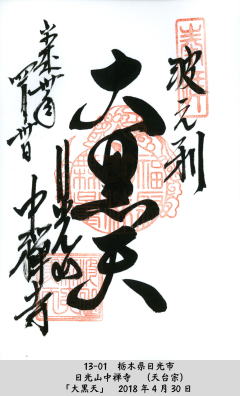 波之利
大黒天
日光山
中禅寺
平成卅年
四月卅日
13-01 栃木県日光市
日光山中禅寺 (天台宗)
「大黒天」 2018年4月30日